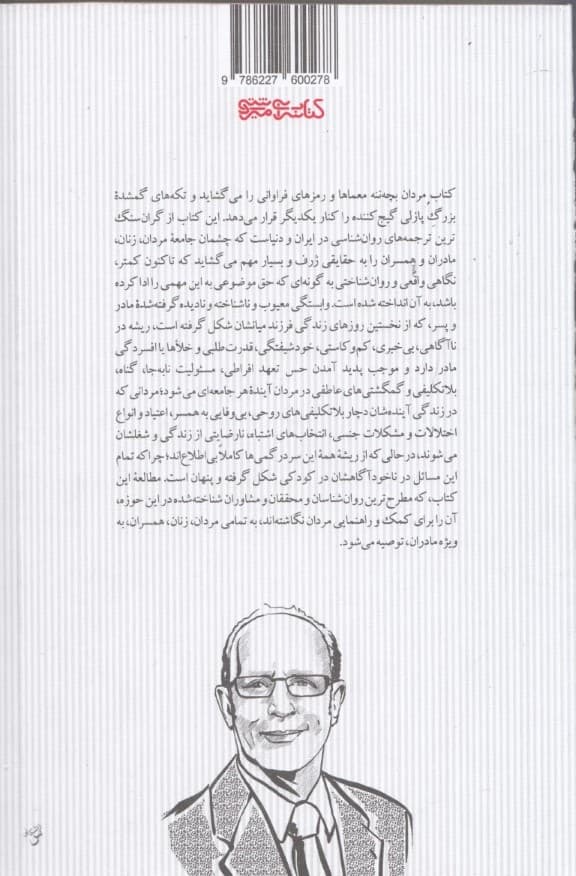 9 786227 600278
کتابسرای میردشتی
کتاب مردان بچه‌ننه معماها و رمزهای فراوانی را می‌گشاید و تکه‌های گمشدهٔ
بزرگِ پازلی گیج‌کننده را کنار یکدیگر قرار می‌دهد. این کتاب از گران‌سنگ
ترین ترجمه‌های روان‌شناسی در ایران و دنیاست که چشمان جامعهٔ مردان، زنان،
مادران و همسران را به حقایقی ژرف و بسیار مهم می‌گشاید که تاکنون کمتر،
نگاهی واقعی و روان‌شناختی به گونه‌ای که حق موضوعی به این مهمی را ادا کرده
باشد، به آن انداخته شده است. وابستگی معیوب و ناشناخته و نادیده گرفته‌شدهٔ مادر
و پسر، که از نخستین روزهای زندگی فرزند میانشان شکل گرفته است، ریشه در
ناآگاهی، بی‌خبری، کم‌وکاستی، خودشیفتگی، قدرت‌طلبی و خلأها یا افسردگی
مادر دارد و موجب پدید آمدن حس تعهد افراطی، مسئولیت نابه‌جا، گناه،
بلاتکلیفی و گمگشتی‌های عاطفی در مردان آیندهٔ هر جامعه‌ای می‌شود؛ مردانی که
در زندگی آینده‌شان دچار بلاتکلیفی‌های روحی، بی‌وفایی به همسر، اعتیاد و انواع
اختلالات و مشکلات جنسی، انتخاب‌های اشتباه، نارضایتی از زندگی و شغلشان
می‌شوند، درحالی‌که از ریشهٔ همهٔ این سردرگمی‌ها کاملا بی‌اطلاع‌اند؛ چراکه تمام
این مسائل در ناخودآگاهشان در کودکی شکل گرفته و پنهان است. مطالعهٔ این
کتاب، که مطرح‌ترین روان‌شناسان و محققان و مشاوران شناخته‌شده در این حوزه،
آن را برای کمک و راهنمایی مردان نگاشته‌اند، به تمامی مردان، زنان، همسران، به
ویژه مادران، توصیه می‌شود.